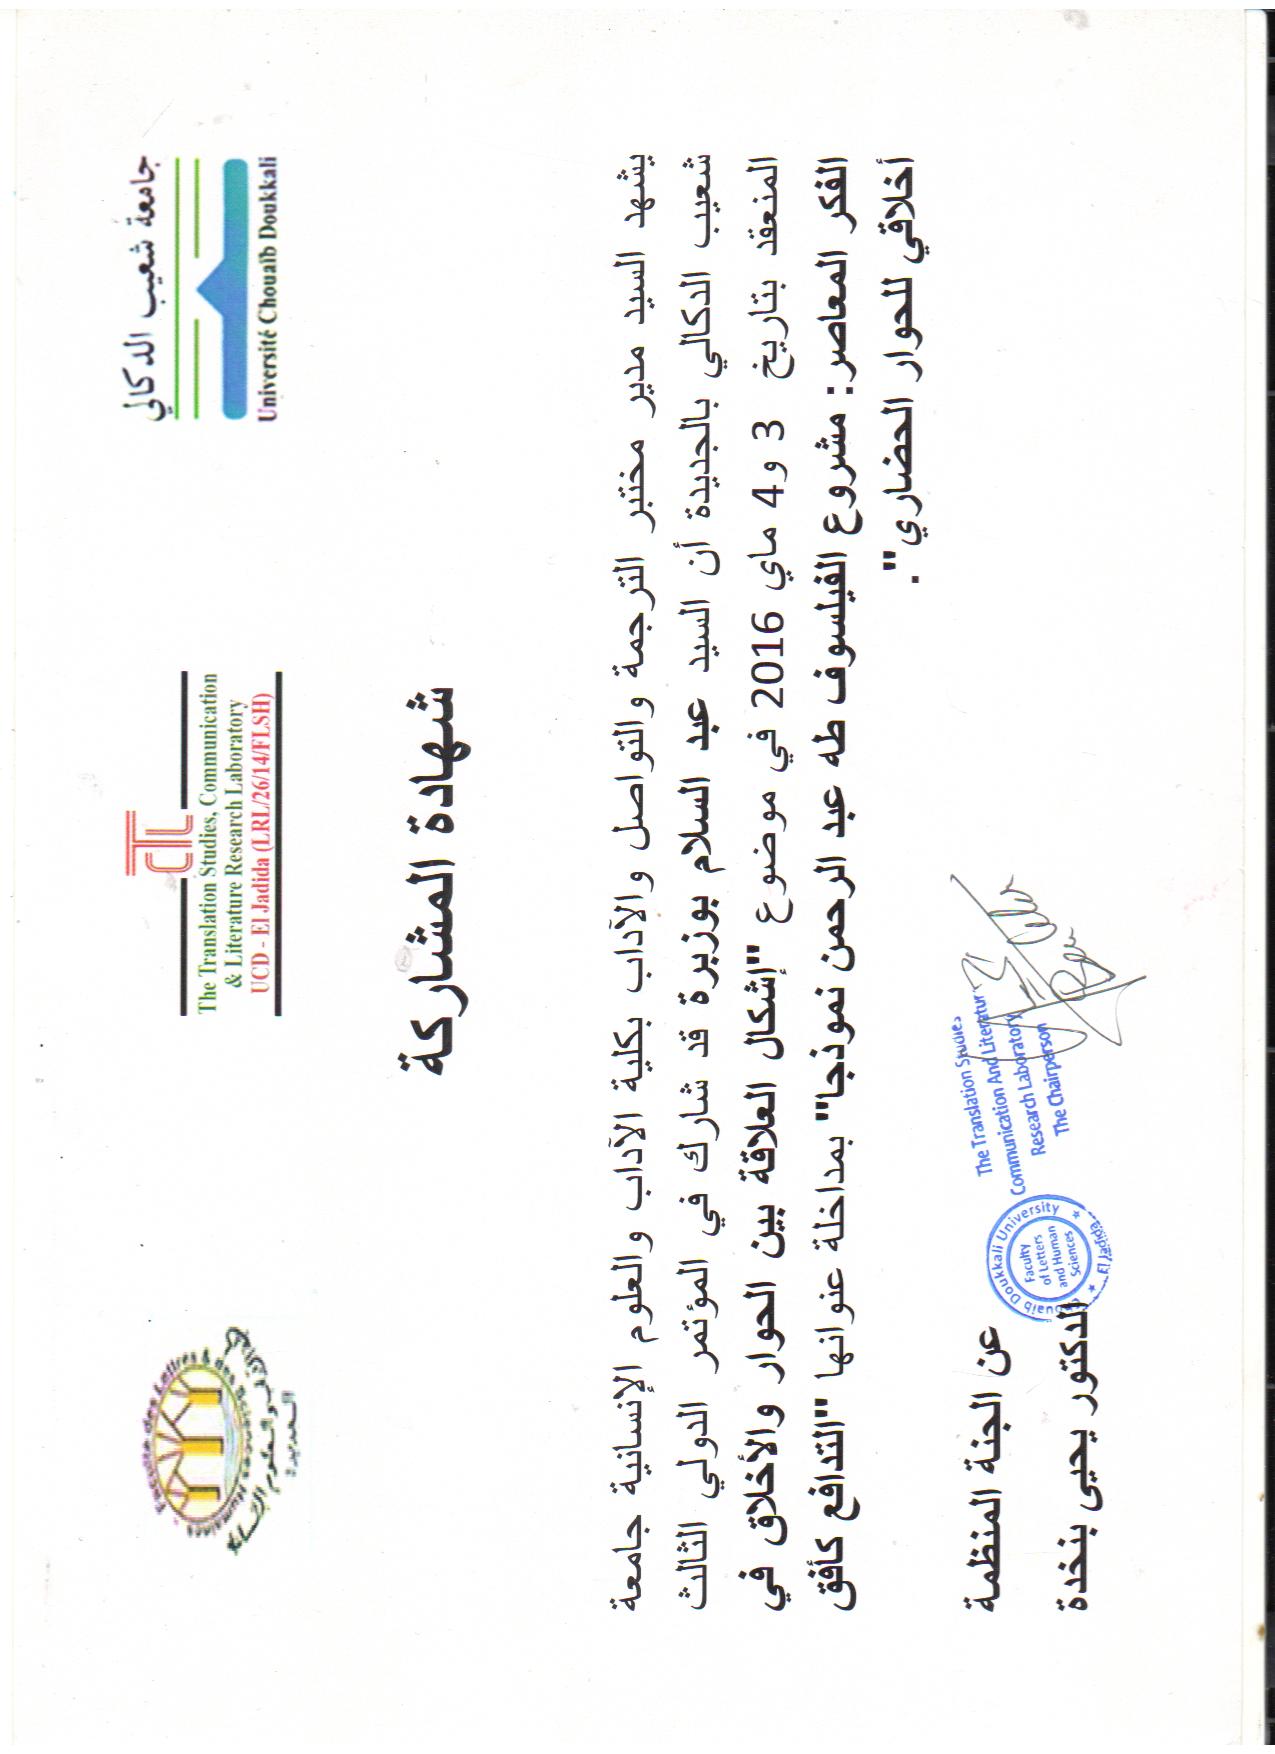 جامعة شعيب الدكالي
Université Chouaïb Doukkali
CTL
The Translation Studies, Communication
& Literature Research Laboratory
UCD - El Jadida (LRL/26/14/FLSH)
Faculté des Lettres & des Sciences Humaines
شهادة المشاركة
يشهد السيد مدير مختبر الترجمة والتواصل والآداب بكلية الآداب والعلوم الإنسانية جامعة
شعيب الدكالي بالجديدة أن السيد عبد السلام بوزبرة قد شارك في المؤتمر الدولي الثالث
المنعقد بتاريخ 3 و4 ماي 2016 في موضوع "إشكال العلاقة بين الحوار والأخلاق في
الفكر المعاصر: مشروع الفيلسوف طه عبد الرحمن نموذجا" بمداخلة عنوانها "التدافع كأفق
أخلاقي للحوار الحضاري".
عن الجنة المنظمة
الدكتور يحيى بنخدة
The Translation Studies
Communication And Literature
Research Laboratory
The Chairperson
Chouaib Doukkali University
Faculty
of Letters
and Human
Sciences
El Jadida